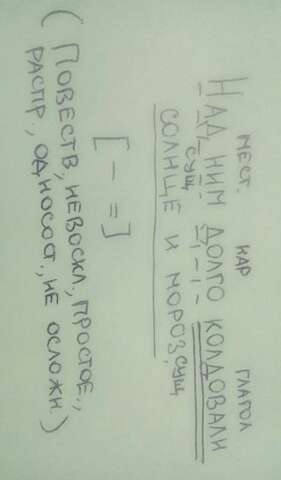 МЕСТ. НАР ГЛАГОЛ
НАД НИМ ДОЛГО КОЛДОВАЛИ
СУЩ СУЩ
СОЛНЦЕ И МОРОЗ.
[ — = ]
(ПОВЕСТВ., НЕВОСКЛ., ПРОСТОЕ.,
РАСПР., ОДНОСОСТ., НЕ ОСЛОЖН.)